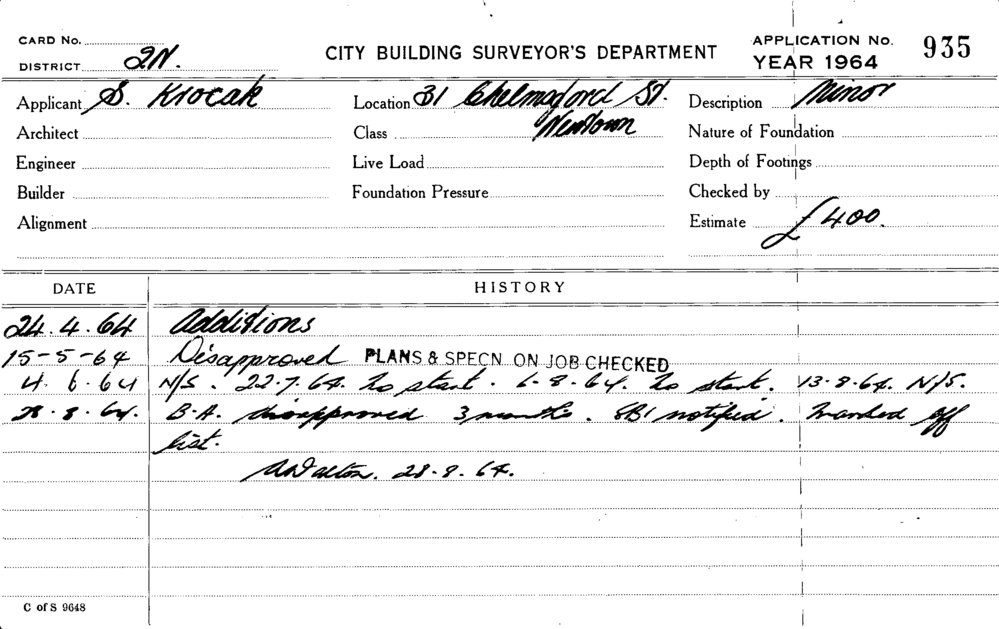 CARD No.
DISTRICT 2N.
CITY BUILDING SURVEYOR'S DEPARTMENT
APPLICATION No. 935
YEAR 1964
Applicant S. Krocak Location 31 Chelmsford St. Description Minor
Architect Class Newtown Nature of Foundation
Engineer Live Load Depth of Footings
Builder Foundation Pressure Checked by
Alignment Estimate £400.
DATE HISTORY
24.4.64 Additions
15-5-64 Disapproved PLANS & SPECN. ON JOB CHECKED
4.6.64 N/S. 22.7.64. to start. 6-8-64. to start. 13.8.64. N/S.
28.8.64. B.A. disapproved 3 months. SBI notified. Marked off
list.
28.8.64.
C of S 9648